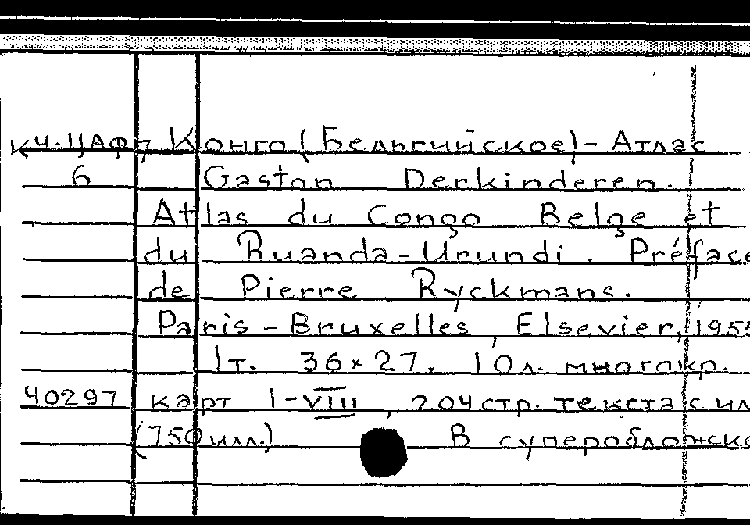 К4.ЦАфр Конго (Бельгийское) - Атлас
6 Gaston Derkinderen.
Atlas du Congo Belge et
du Ruanda-Urundi. Préface
de Pierre Ryckmans.
Paris - Bruxelles, Elsevier, 1955
1т. 36×27. 10л. многокр.
40297 карт I-VIII, 204 стр. текста с ил
(750 илл.) В суперобложке